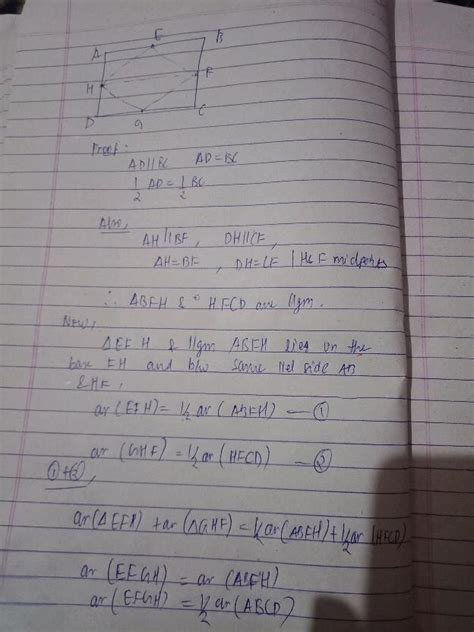 E
B
A
H
F
D
G
C
Proof:
AD||BC AD=BC
1/2 AD = 1/2 BC
Also,
AH||BF , DH||CF,
AH=BF , DH=CF | H & F midpoints
∴ ABFH & HFCD are ||gm.
Now,
ΔEFH & ||gm ABFH lies on the
base FH and b/w same ||el side AB
& HF,
ar(EFH)=½ ar(ABFH) — ①
ar(GHF)=½ ar(HFCD) — ②
①+②,
ar(ΔEFH) + ar(ΔGHF) = ½ ar(ABFH)+½ ar(HFCD)
ar(EFGH) = ar(ABFH)
ar(EFGH) = ½ ar(ABCD)